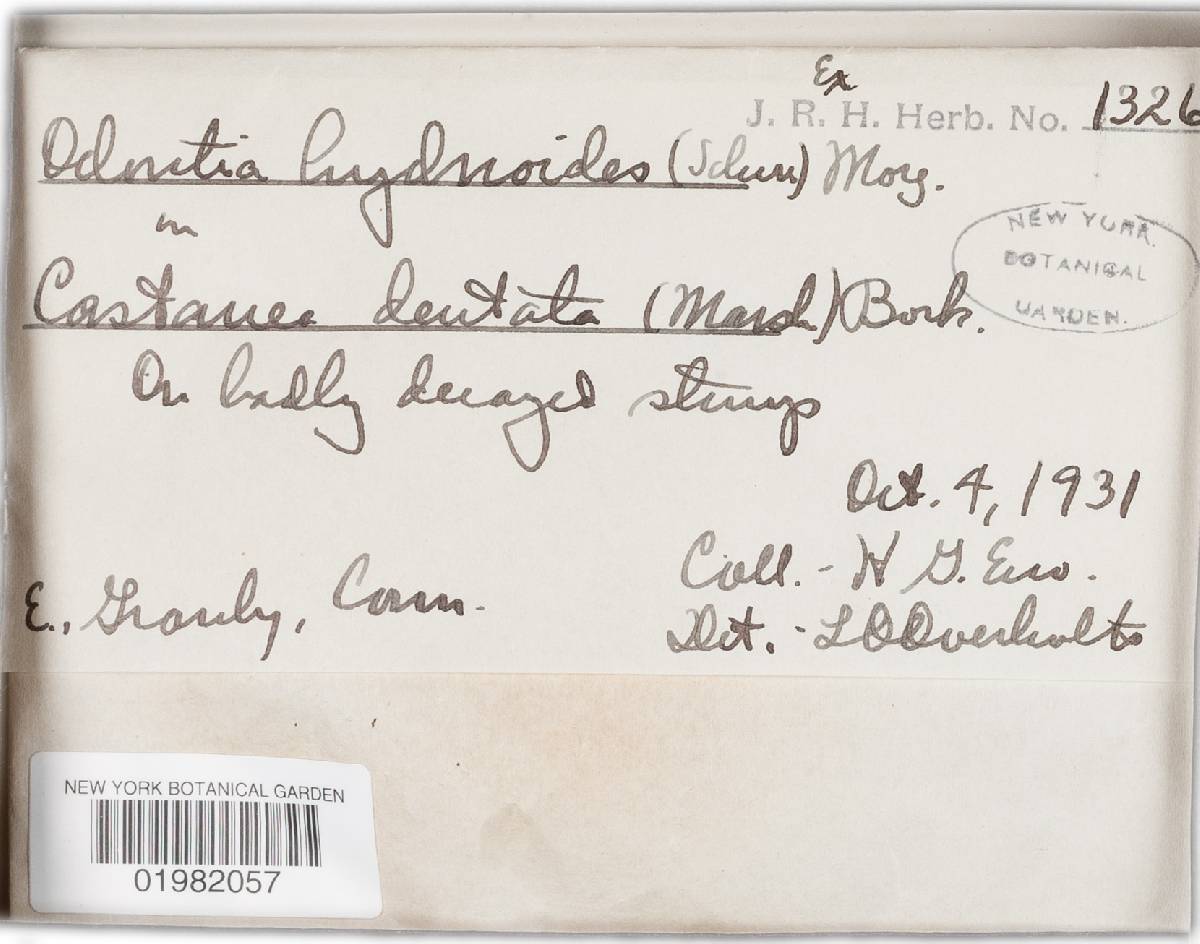 Ex
J. R. H. Herb. No. 1326
Odontia hydnoides (Schw) Morg.
NEW YORK
BOTANICAL
GARDEN.
on
Castanea dentata (Marsh) Bork.
On badly decayed stump
Oct. 4, 1931
Coll. - H G. Eno.
E. Granby, Conn.
Det. - L O Overholts
NEW YORK BOTANICAL GARDEN
01982057